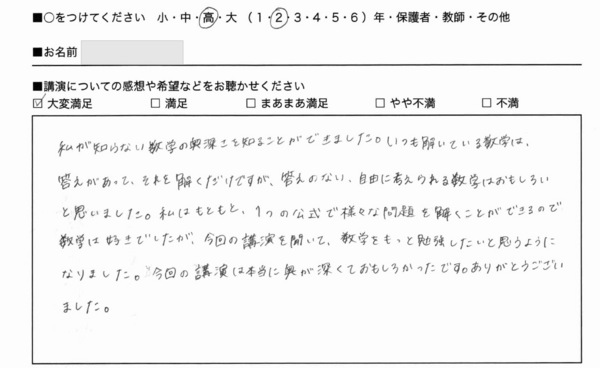 ■○をつけてください 小・中・高・大 (1・2・3・4・5・6) 年・保護者・教師・その他
■お名前
■講演についての感想や希望などをお聴かせください
☑ 大変満足 □ 満足 □ まあまあ満足 □ やや不満 □ 不満
私が知らない数学の奥深さを知ることができました。いつも解いている数学は、
答えがあって、それを解くだけですが、答えのない、自由に考えられる数学はおもしろい
と思いました。私はもともと、1つの公式で様々な問題を解くことができるので
数学は好きでしたが、今回の講演を聞いて、数学をもっと勉強したいと思うように
なりました。今回の講演は本当に奥が深くておもしろかったです。ありがとうござい
ました。